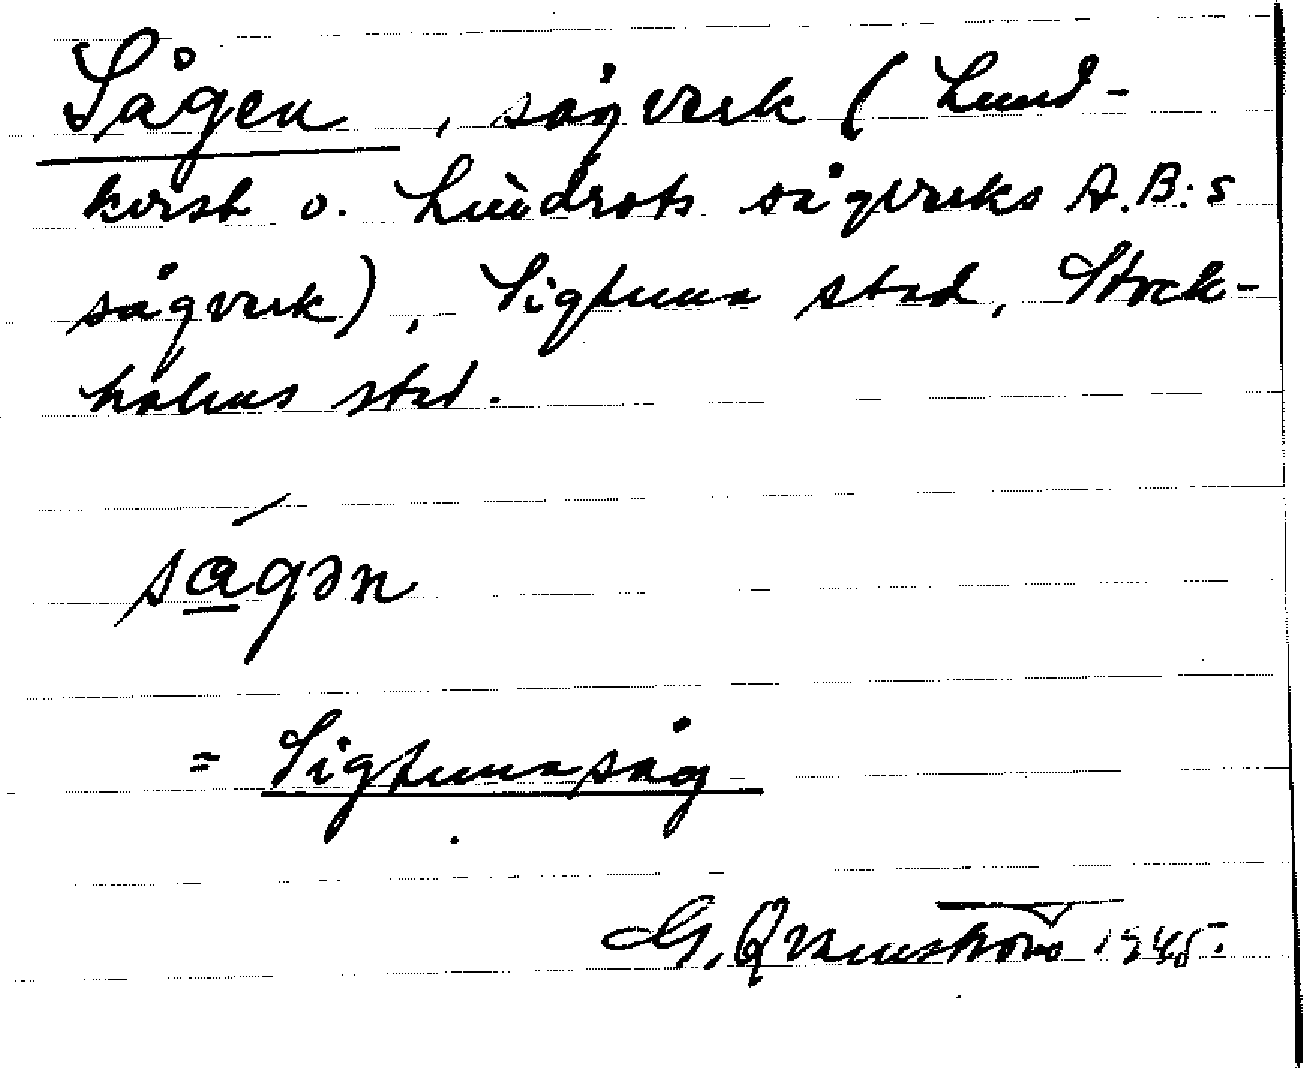 Sågen, sågverk (Lund-
kvist o. Lindrots sågverks A.B:s
sågverk), Sigtuna stad, Stock-
holms stad.
sågən
= Sigtunasåg
G. Qvarnström 1945.